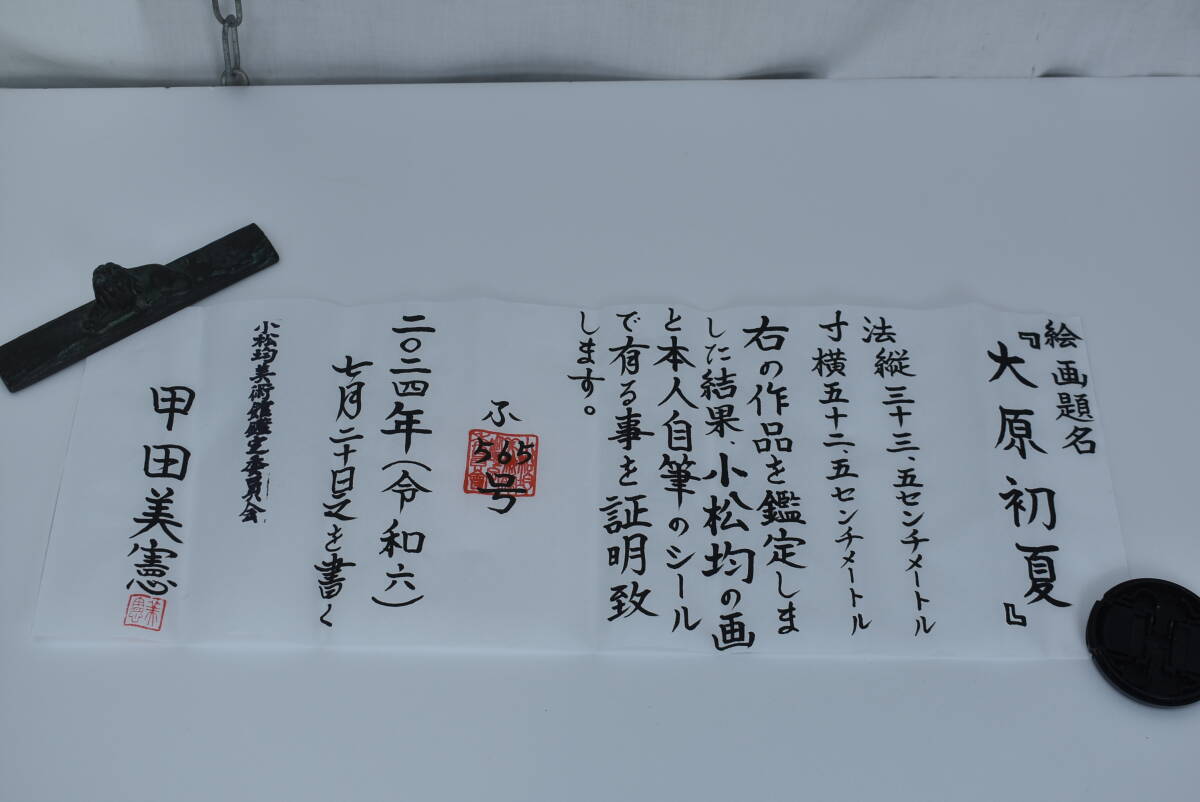 絵画題名
『大原初夏』
法縦三十三、五センチメートル
寸横五十二、五センチメートル
右の作品を鑑定しま
した結果、小松均の画
と本人自筆のシール
で有る事を証明致
します。
ふ
565
号
二〇二四年(令和六)
七月二十日之を書く
小松均美術館鑑定委員会
甲田美憲
美憲